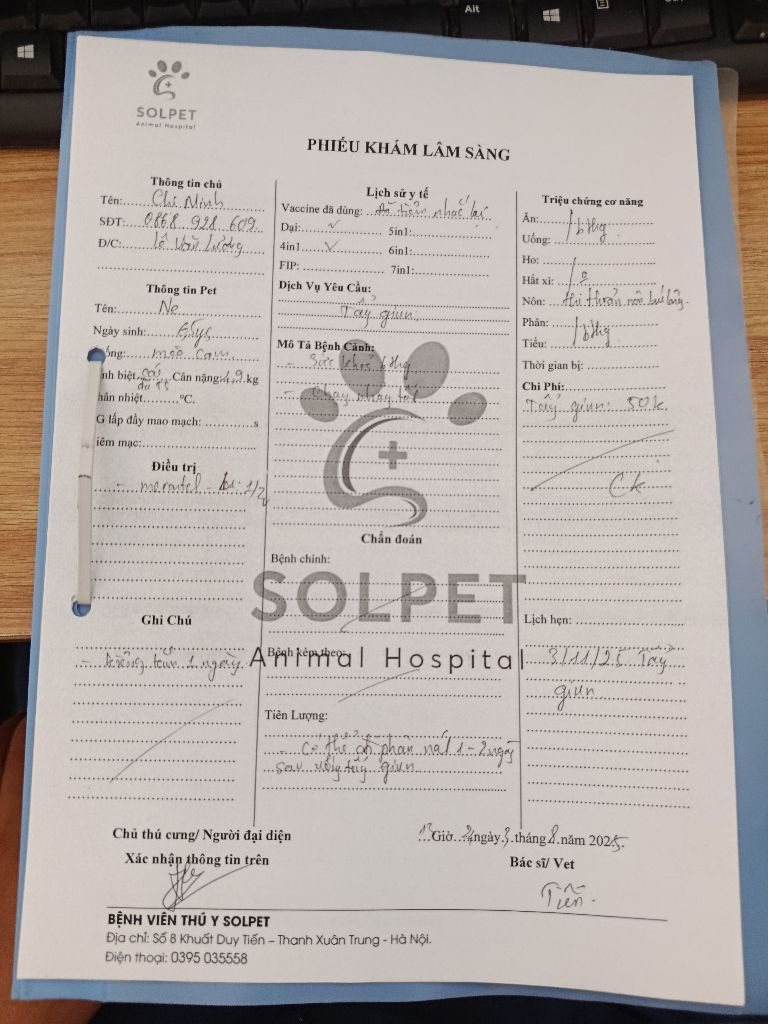 SOLPET
Animal Hospital
PHIẾU KHÁM LÂM SÀNG
Thông tin chủ
Tên: Chị Ninh
SĐT: 0868 928 609
Đ/C: Lê Văn Lương
Thông tin Pet
Tên: Ne
Ngày sinh:
ống: mèo cam
nh biệt: cái Cân nặng: kg
hân nhiệt ºC.
G lấp đầy mao mạch: s
iêm mạc:
Điều trị
- 1/2
Ghi Chú
- không tắm 1 ngày
Lịch sử y tế
Vaccine đã dùng: Đã tiêm nhắc lại
Dại: ✓ 5in1:
4in1 ✓ 6in1:
FIP: 7in1:
Dịch Vụ Yêu Cầu:
Tẩy giun
Mô Tả Bệnh Cảnh:
- Sức khoẻ bthg
- Chạy nhảy tốt
SOLPET
Animal Hospital
Chẩn đoán
Bệnh chính:
Bệnh kèm theo:
Tiên Lượng:
- Có thể đi phân nát 1-2 ngày
sau uống tẩy giun
Triệu chứng cơ năng
Ăn:
bthg
Uống:
Ho:
Hắt xì:
Nôn: thi thoảng nôn búi lông
Phân:
bthg
Tiểu:
Thời gian bị:
Chi Phí:
Tẩy giun: 50k
CK
Lịch hẹn:
3/11/25 Tẩy
giun
Chủ thú cưng/ Người đại diện
Xác nhận thông tin trên
Giờ ngày 3 tháng 8 năm 2025.
Bác sĩ/ Vet
Tiến
BỆNH VIÊN THÚ Y SOLPET
Địa chỉ: Số 8 Khuất Duy Tiến – Thanh Xuân Trung - Hà Nội.
Điện thoại: 0395 035558